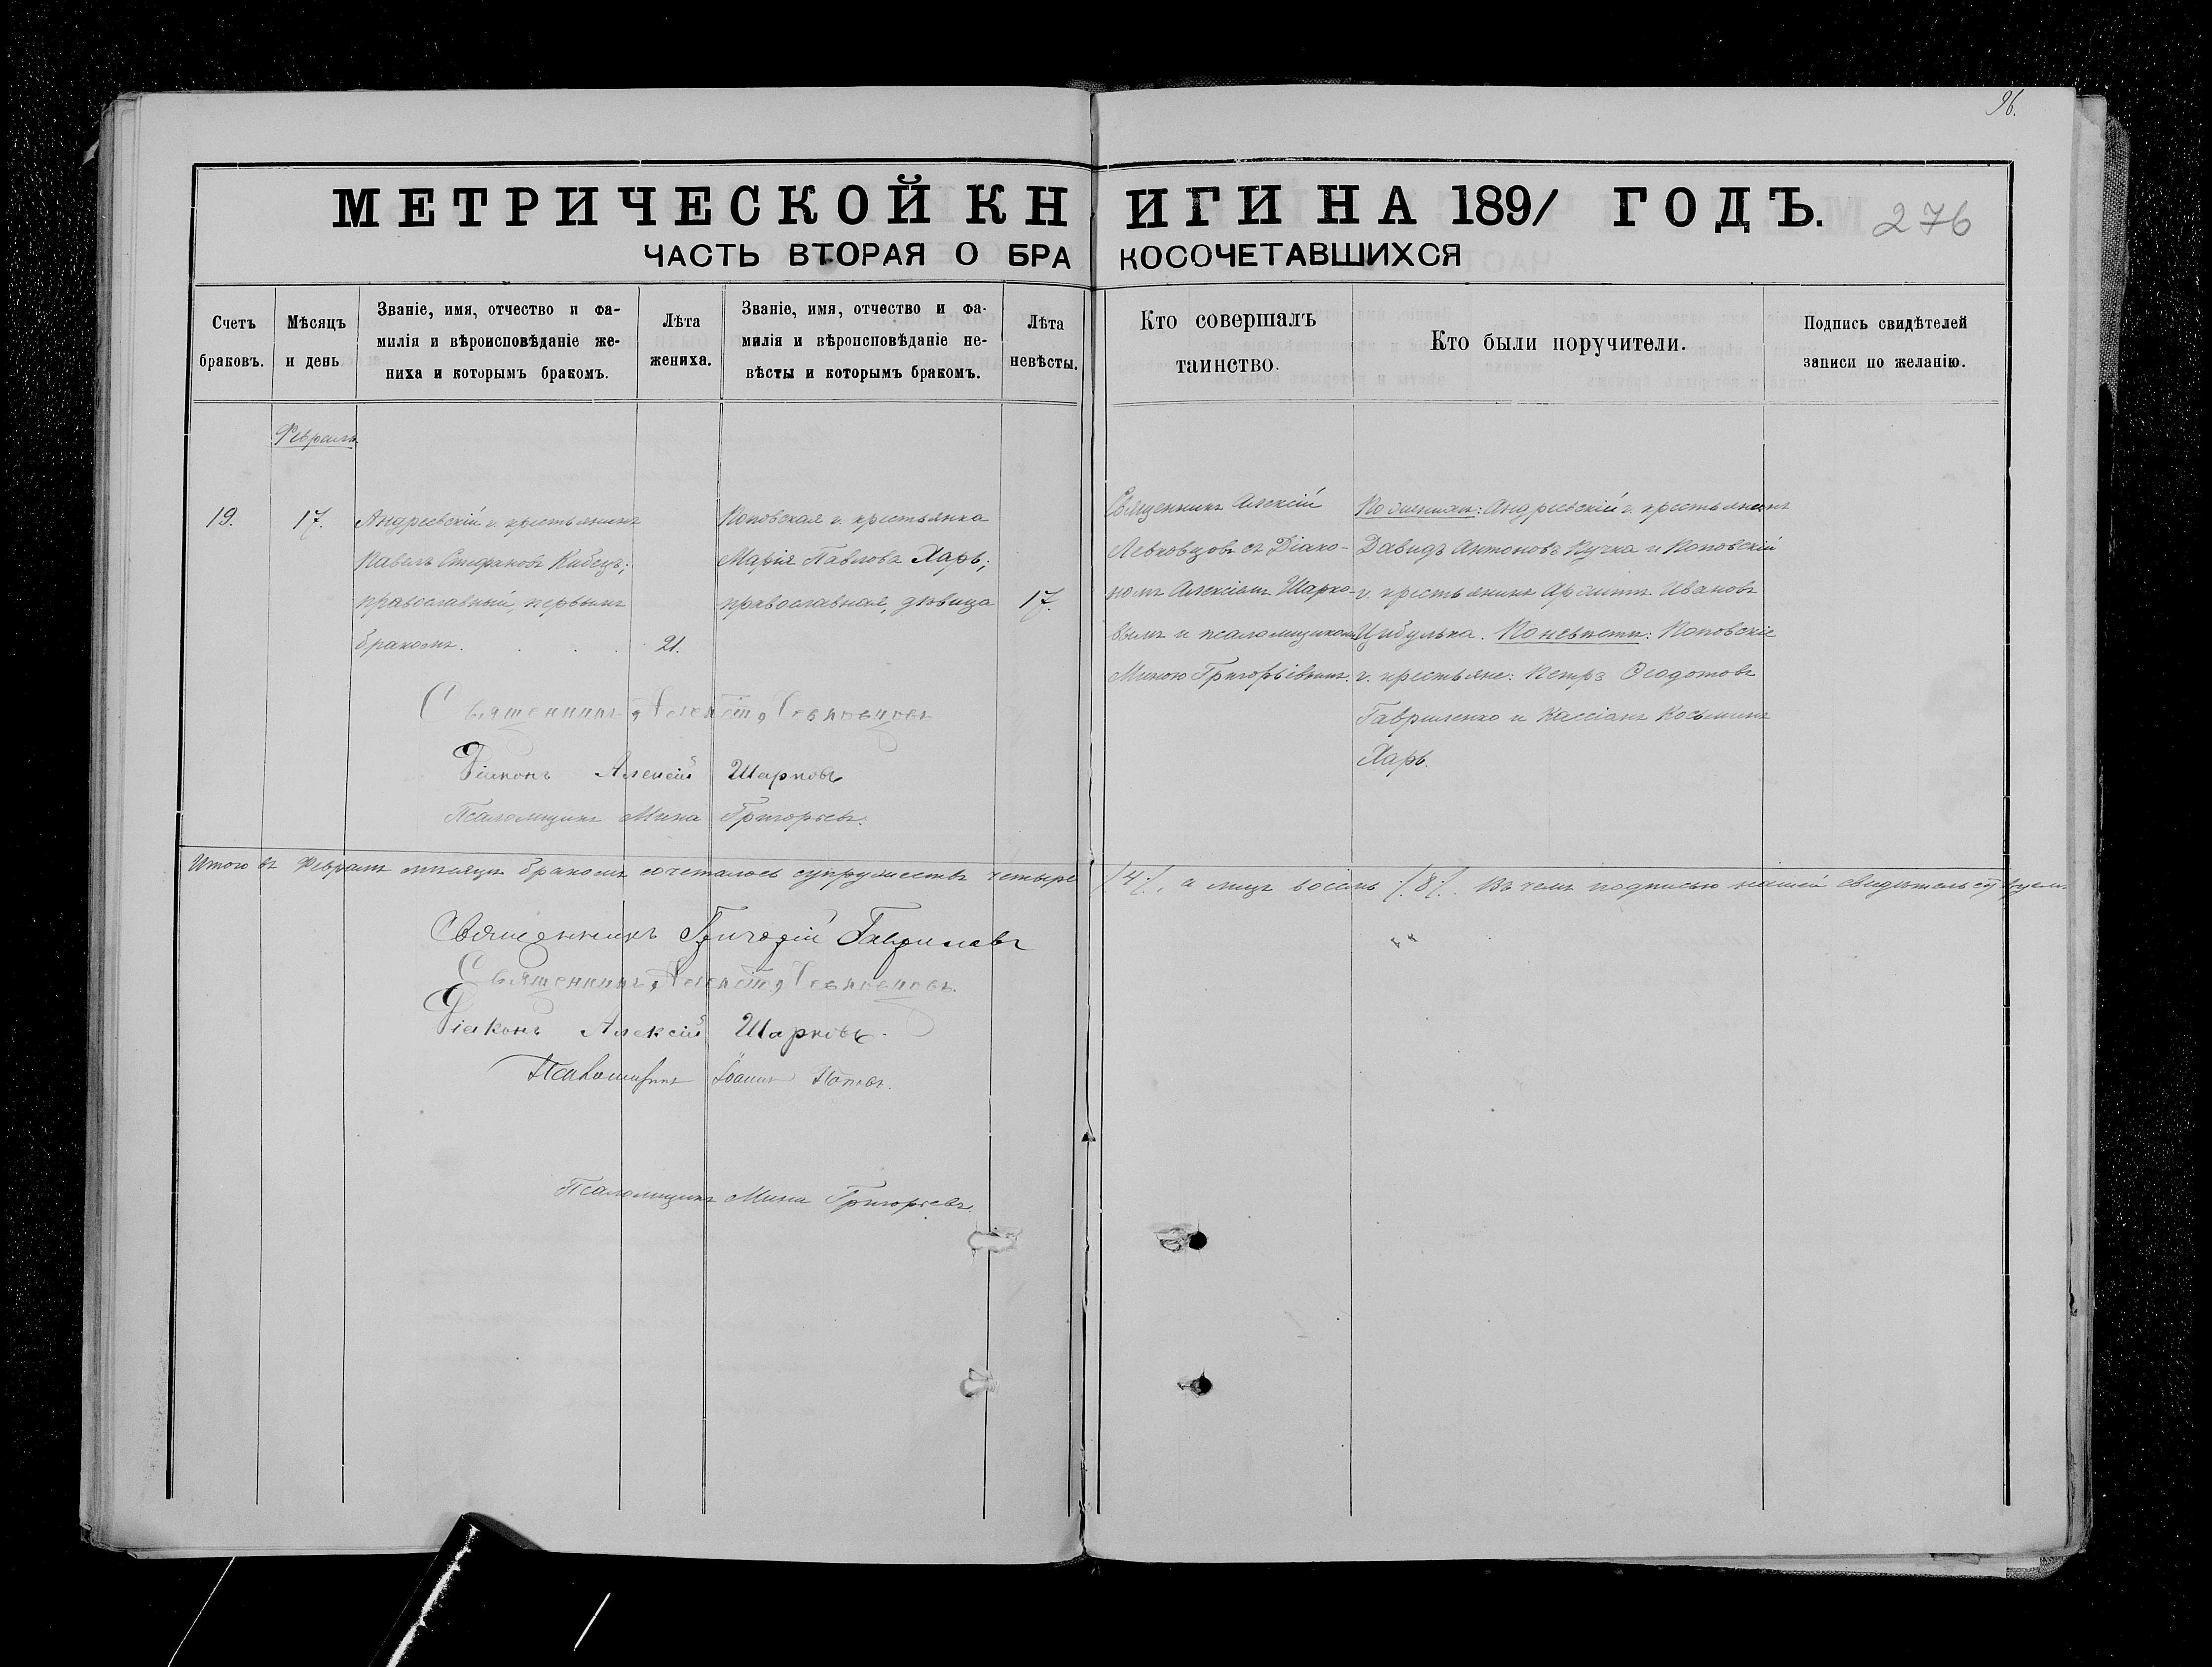 96.
МЕТРИЧЕСКОЙ КНИГИ НА 1891 ГОДЪ.
276
ЧАСТЬ ВТОРАЯ О БРАКОСОЧЕТАВШИХСЯ
Счетъ браковъ.
Мѣсяцъ и день
Званіе, имя, отчество и фа-
милія и вѣроисповѣданіе же-
ниха и которымъ бракомъ.
Лѣта жениха.
Званіе, имя, отчество и фа-
милія и вѣроисповѣданіе не-
вѣсты и которымъ бракомъ.
Лѣта невѣсты.
Кто совершалъ таинство.
Кто были поручители.
Подпись свидѣтелей
записи по желанію.
Февраль
19.
17.
Андреевскій с. крестьянинъ
Павелъ Стефановъ Кибецъ;
православный, первымъ
бракомъ.
21.
Поповская с. крестьянка
Марія Павлова Харь;
православная, дѣвица
17.
Священникъ Алексій
Левковцовъ съ Діако-
номъ Алексіемъ Шарко-
вымъ и псаломщикомъ
Миною Григорьевымъ.
По женихѣ: Андреевскій с. крестьянинъ
Давидъ Антоновъ Кучка и Поповскій
с. крестьянинъ Иванов
Цибулька. По невѣстѣ: Поповскіе
с. крестьяне: Петръ Ѳеодотовъ
Гавриленко и Кассіанъ Косьминъ
Харь.
Священникъ Алексій Левковцовъ
Діаконъ Алексій Шарковъ
Псаломщикъ Мина Григорьевъ.
Итого въ Февралѣ мѣсяцѣ бракомъ сочеталось супружествъ четыре /4/, а лицъ восемь /8/. Въ чемъ подписью нашей свидѣтельствуемъ
Священникъ Григорій Гавриловъ
Священникъ Алексій Левковцовъ.
Діаконъ Алексій Шарковъ.
Псаломщикъ Іоаннъ Поповъ.
Псаломщикъ Мина Григорьевъ.